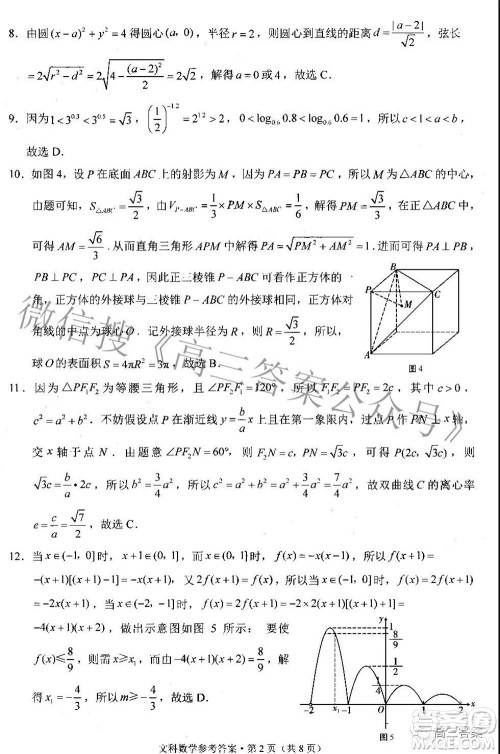 8. 由圆(x−a)²+y²=4得圆心(a, 0)，半径r=2，则圆心到直线的距离d=|a−2|/√2，弦长
=2√(r²−d²)=2√(4−(a−2)²/2)=2√2，解得a=0或4，故选C.
9. 因为1<3^0.3<3^0.5=√3，(1/2)^−1.2=2^1.2>2，0<log₀.₆0.8<log₀.₆0.6=1，所以c<1<a<b，
故选D.
10. 如图4，设P在底面ABC上的射影为M，因为PA=PB=PC，所以M为△ABC的中心，
由题可知，S△ABC=√3/2，由V_P−ABC=1/3×PM×S△ABC=1/6，解得PM=√3/3，在正△ABC中，
可得AM=√6/3.从而直角三角形APM中解得PA=√(PM²+AM²)=1.进而可得PA⊥PB，
PB⊥PC，PA⊥PC，因此正三棱锥P−ABC可看作正方体的一
角，正方体的外接球与三棱锥P−ABC的外接球相同，正方体对
角线的中点为球心O.记外接球半径为R，则R=√3/2，所以，
球O的表面积S=4πR²=3π，故选B.
P
B
C
M
A
图4
11. 因为△PF₁F₂为等腰三角形，且∠PF₂F₁=120°，所以F₁F₂=PF₂=2c，其中c>0，
c²=a²+b².不妨假设点P在渐近线y=b/a x上且在第一象限内，过点P作PN⊥x轴，
交x轴于点N.由题意∠PF₂N=60°，则F₂N=c，PN=√3c，可得P(2c, √3c)，则
√3c=b/a•2c，所以b²=3/4a²，所以c²=a²+b²=a²+3/4a²=7/4a²，故双曲线C的离心率
e=c/a=√7/2，故选C.
12. 当x∈(−1, 0]时，x+1∈(0, 1]，而x∈(0, 1]时，f(x)=−x(x−1)，所以f(x+1)=
−(x+1)[(x+1)−1]=−x(x+1)，又2f(x+1)=f(x)，所以当x∈(−1, 0]时，f(x)=
−2x(x+1)，当x∈(−2, −1]时，f(x)=2f(x+1)=−2×2(x+1)[(x+1)+1]=
−4(x+1)(x+2)，做出示意图如图5所示：要使
f(x)≤8/9，则需x≥x₁，而−4(x+1)(x+2)=8/9，解
得x₁=−4/3，所以m≥−4/3，故选D.
y
1
8/9
1/2
1/4
−2
−1
O
1
2
x
图5
文科数学参考答案·第2页（共8页）
微信搜《高三答案公众号》
高三答案